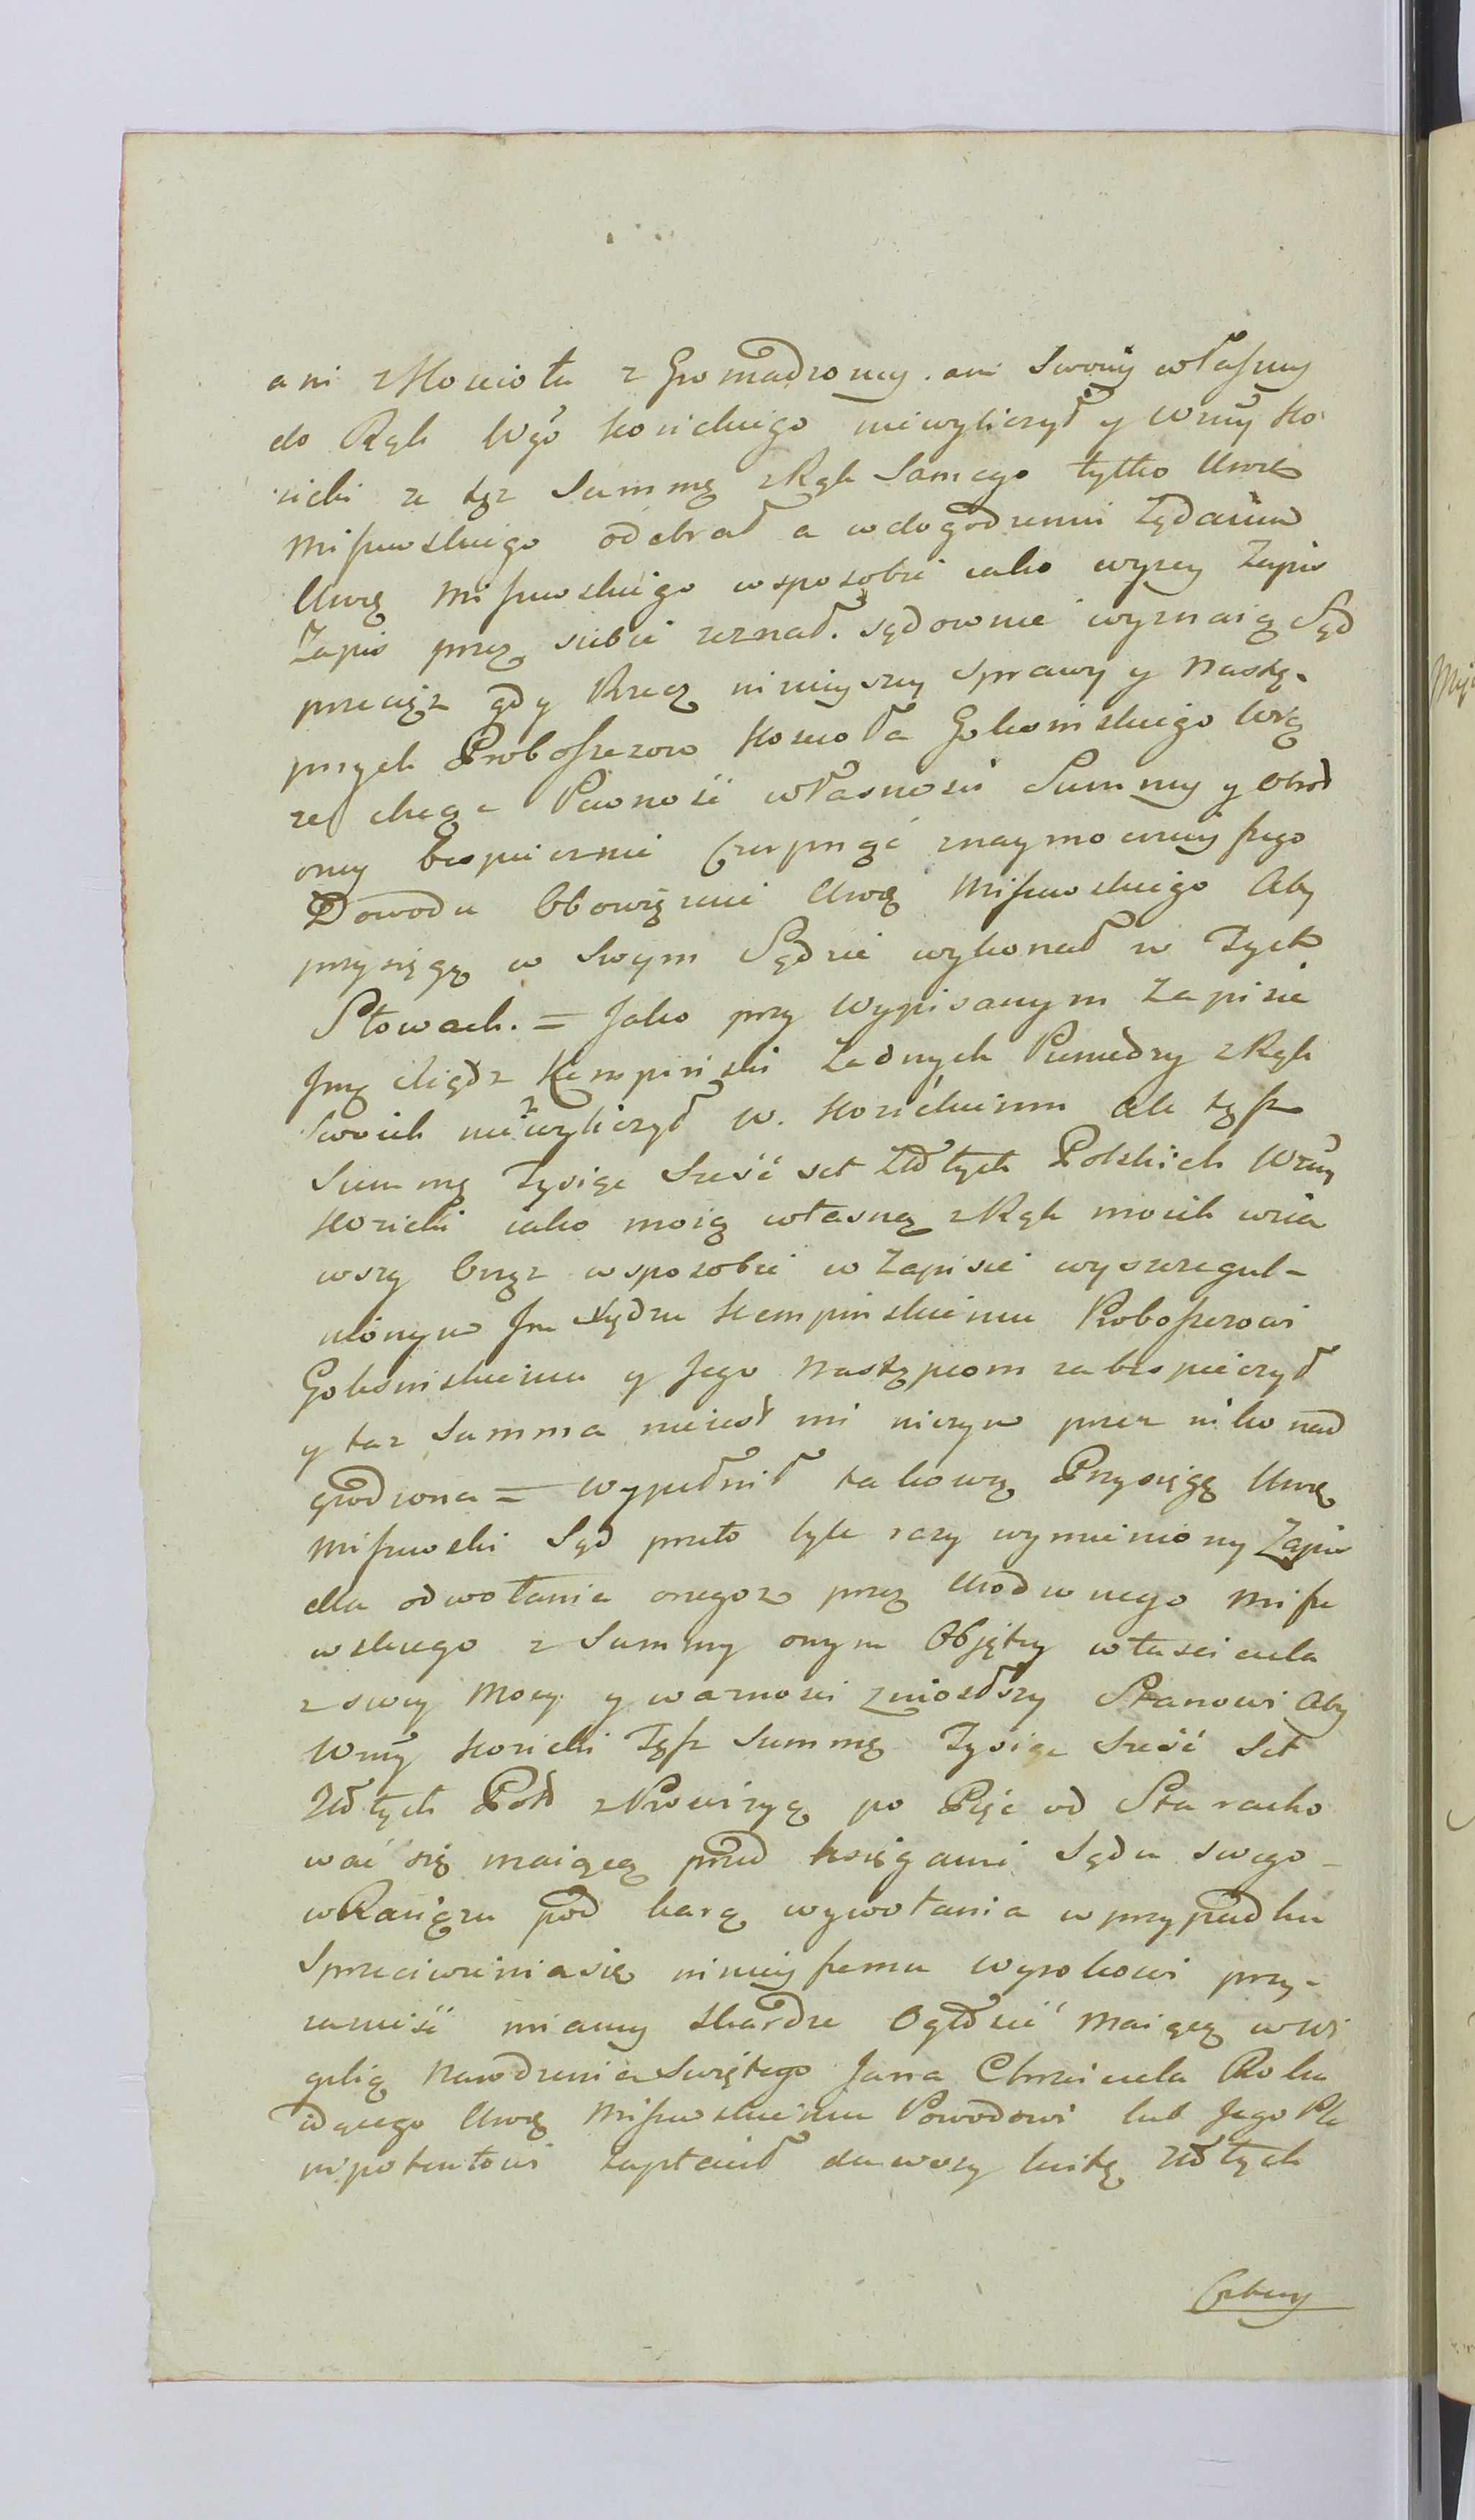 ani z Kościoła zGromadzoney. ani Swoiey własney
do Rąk Wgo Kozickiego niewyliczył y Wzny Ko
zicki że tęż Summę z Rąk Samego tylko Urze
Miszewskiego odebrał a wdogodzeniu Żądaniu
Urzę Miszewskiego wsposobie iako wyżey Zapis
Zapis przez siebie zeznał. sądownie wyznaią Sąd
przeciąż gdy Rzecz ninieyszey sprawy y Nastę-
pnych Proboszczow Kościoła Gołonińskiego Wrę
ze chcąc Pewność własności Summy y
oney bespiecznie Czerpnąć znaymocnieyszego
Dowodu Obowiąznie Urzę Miszewskiego Aby
przysięgę w Swym Sądzie wykonał w Tych
Słowach. = Jako przy Wypisanym Zapisie
Jmę Xiądz Kempinski Żadnych Pieniedzy z Rąk
Swoich niewyliczył W. Kozickiemu ale tęsz
Summę Tysiąc Sześć set Złłtych Polskich Wzny
Kozicki iako moią własną z Rąk moich wzia
wszy Onęż wsposobie w Zapisie wyszczegul-
nionym Jm Xiędzu Kempinskiemu Proboszczowi
y Jego Następcom zabespieczył
y taż Summa nieiest mi niczym przez niko nad
grodzona = Wypełnił takową Przysięgę Urzę
Miszewski Sąd przeto tyle razy wymieniony Zapis
dla odwołania onegoż przez Urodzonego Misze
wskiego z Summy onym Objętey własciciela
z swey Mocy y warnosci zniosłszy Stanowi Aby
Wzny Kozicki Tęsz Summę Tysiąc Sześć Set
Złłtych Pols z Prowizyą po Pięć od Sta racho
wać się maiącą przed księgami Sądu swego
wRaciążu pod karą wywołania wprzypadku
Sprzeciwienia się ninieyszemu Wyrokowi przy-
miany skardze Ogłosić maiącą wWi
gilią Narodzenia Swiętego Jana Chrzciciela Roku
idącego Urzę Miszewskiemu Powodowi lub Jego Ple
nipotentowi zapłacił dawszy kwitę Złłtych